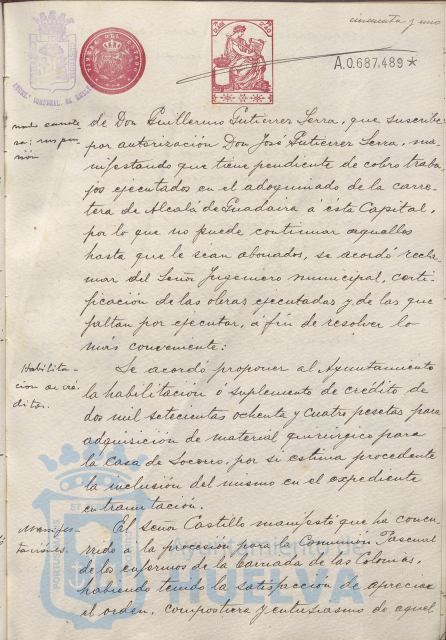 cincuenta y uno
TIMBRE DEL ESTADO
A.0.687.489*
de Don Guillermo Gutierrez Serra, que suscribe
por autorización Don José Gutierrez Serra, ma-
nifestando que tiene pendiente de cobro traba-
jos ejecutados en el adoquinado de la carre-
tera de Alcalá de Guadaira á esta Capital,
por lo que no puede continuar aquellos
hasta que le sean abonados, se acordó recla-
mar del Señor Ingeniero municipal, certi-
ficación de las obras ejecutadas y de las que
faltan por ejecutar, á fin de resolver lo
más conveniente:
Habilita-
cion de cré-
ditos.
Se acordó proponer al Ayuntamiento
la habilitación ó suplemento de crédito de
dos mil setecientas ochenta y cuatro pesetas para
adquisición de material quirúrgico para
la Casa de Socorro, por si estima procedente
la inclusión del mismo en el expediente
en tramitación:
Manifes-
taciones.
El señor Castillo manifestó que ha concu-
rrido á la procesión para la Comunión Pascual
de los enfermos de la Barriada de las Colonias,
habiendo tenido la satisfacción de apreciar
el orden, compostura y entusiasmo de aquel
Ayuntamiento de
HUELVA